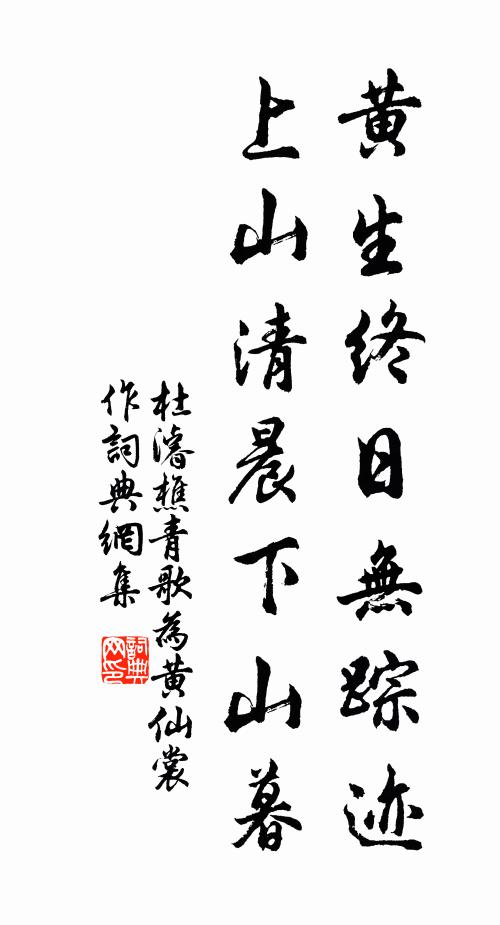 黄生终日無踪迹
上山清晨下山暮
杜濬樵青歌為黄仙裳
作詞典網集
詞典网印